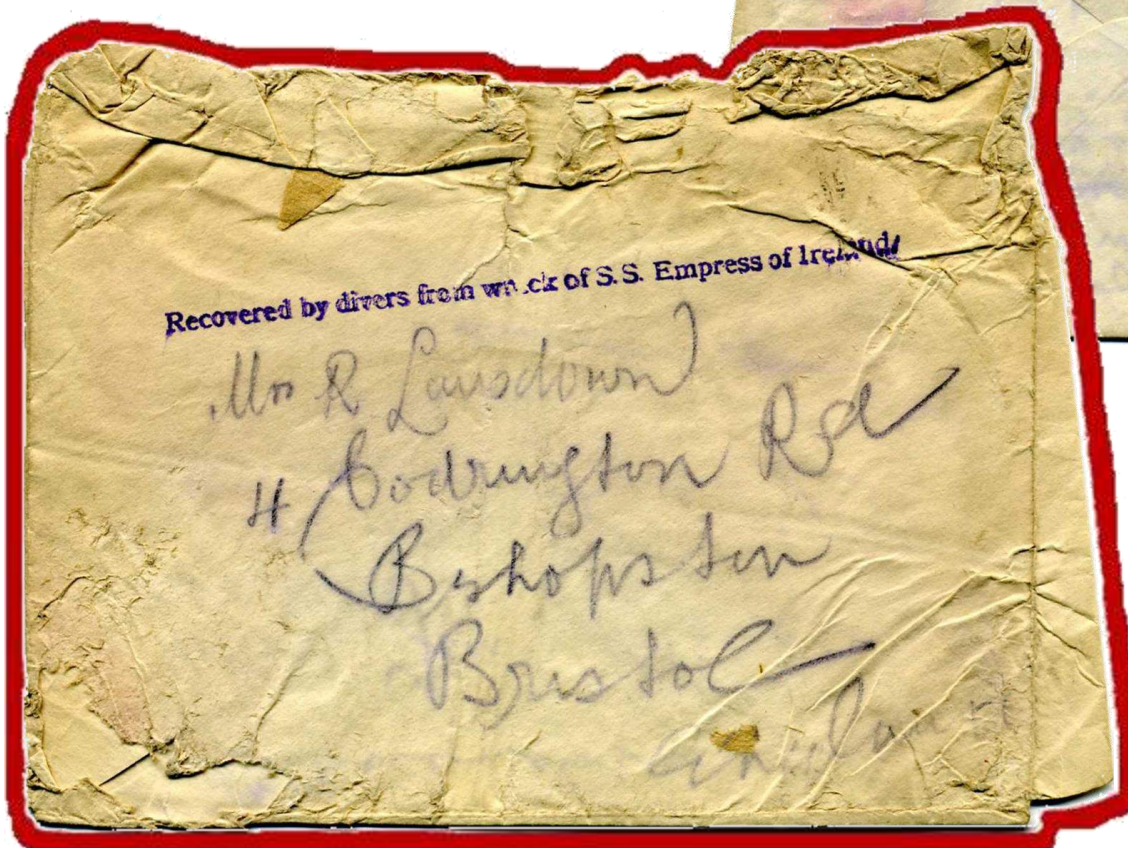 Recovered by divers from wreck of S.S. Empress of Ireland
Mrs R Lansdown
4 Codrington Rd
Bishopston
Bristol
England